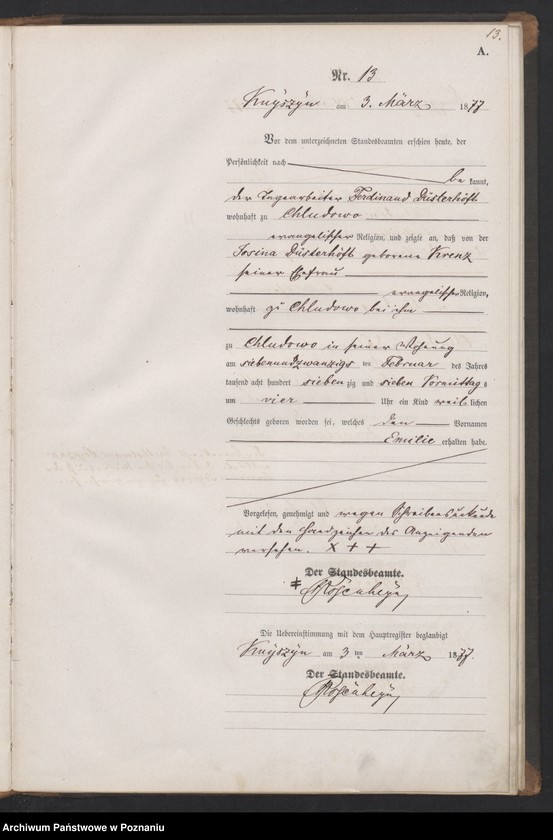 13.
A.
Nr. 13
Knyszyn am 3. März 1877
Vor dem unterzeichneten Standesbeamten erschien heute, der
Persönlichkeit nach
be kannt,
der Tagearbeiter Ferdinand Düsterhöft
wohnhaft zu Chludowo
evangelischer Religion, und zeigte an, daß von der
Josina Düsterhöft geborene Krenz
seiner Ehefrau
evangelischer Religion,
wohnhaft zu Chludowo bei ihm
zu Chludowo in seiner Wohnung
am siebenundzwanzigs ten Februar des Jahres
tausend acht hundert sieben zig und sieben Vormittags
um vier Uhr ein Kind weib lichen
Geschlechts geboren worden sei, welches den Vornamen
Emilie erhalten habe.
Vorgelesen, genehmigt und wegen Schreibensunkunde
mit dem Handzeichen des Anzeigenden
versehen. X + +
Der Standesbeamte.
Die Uebereinstimmung mit dem Hauptregister beglaubigt
Knyszyn am 3 ten März 1877.
Der Standesbeamte.
Archiwum Państwowe w Poznaniu